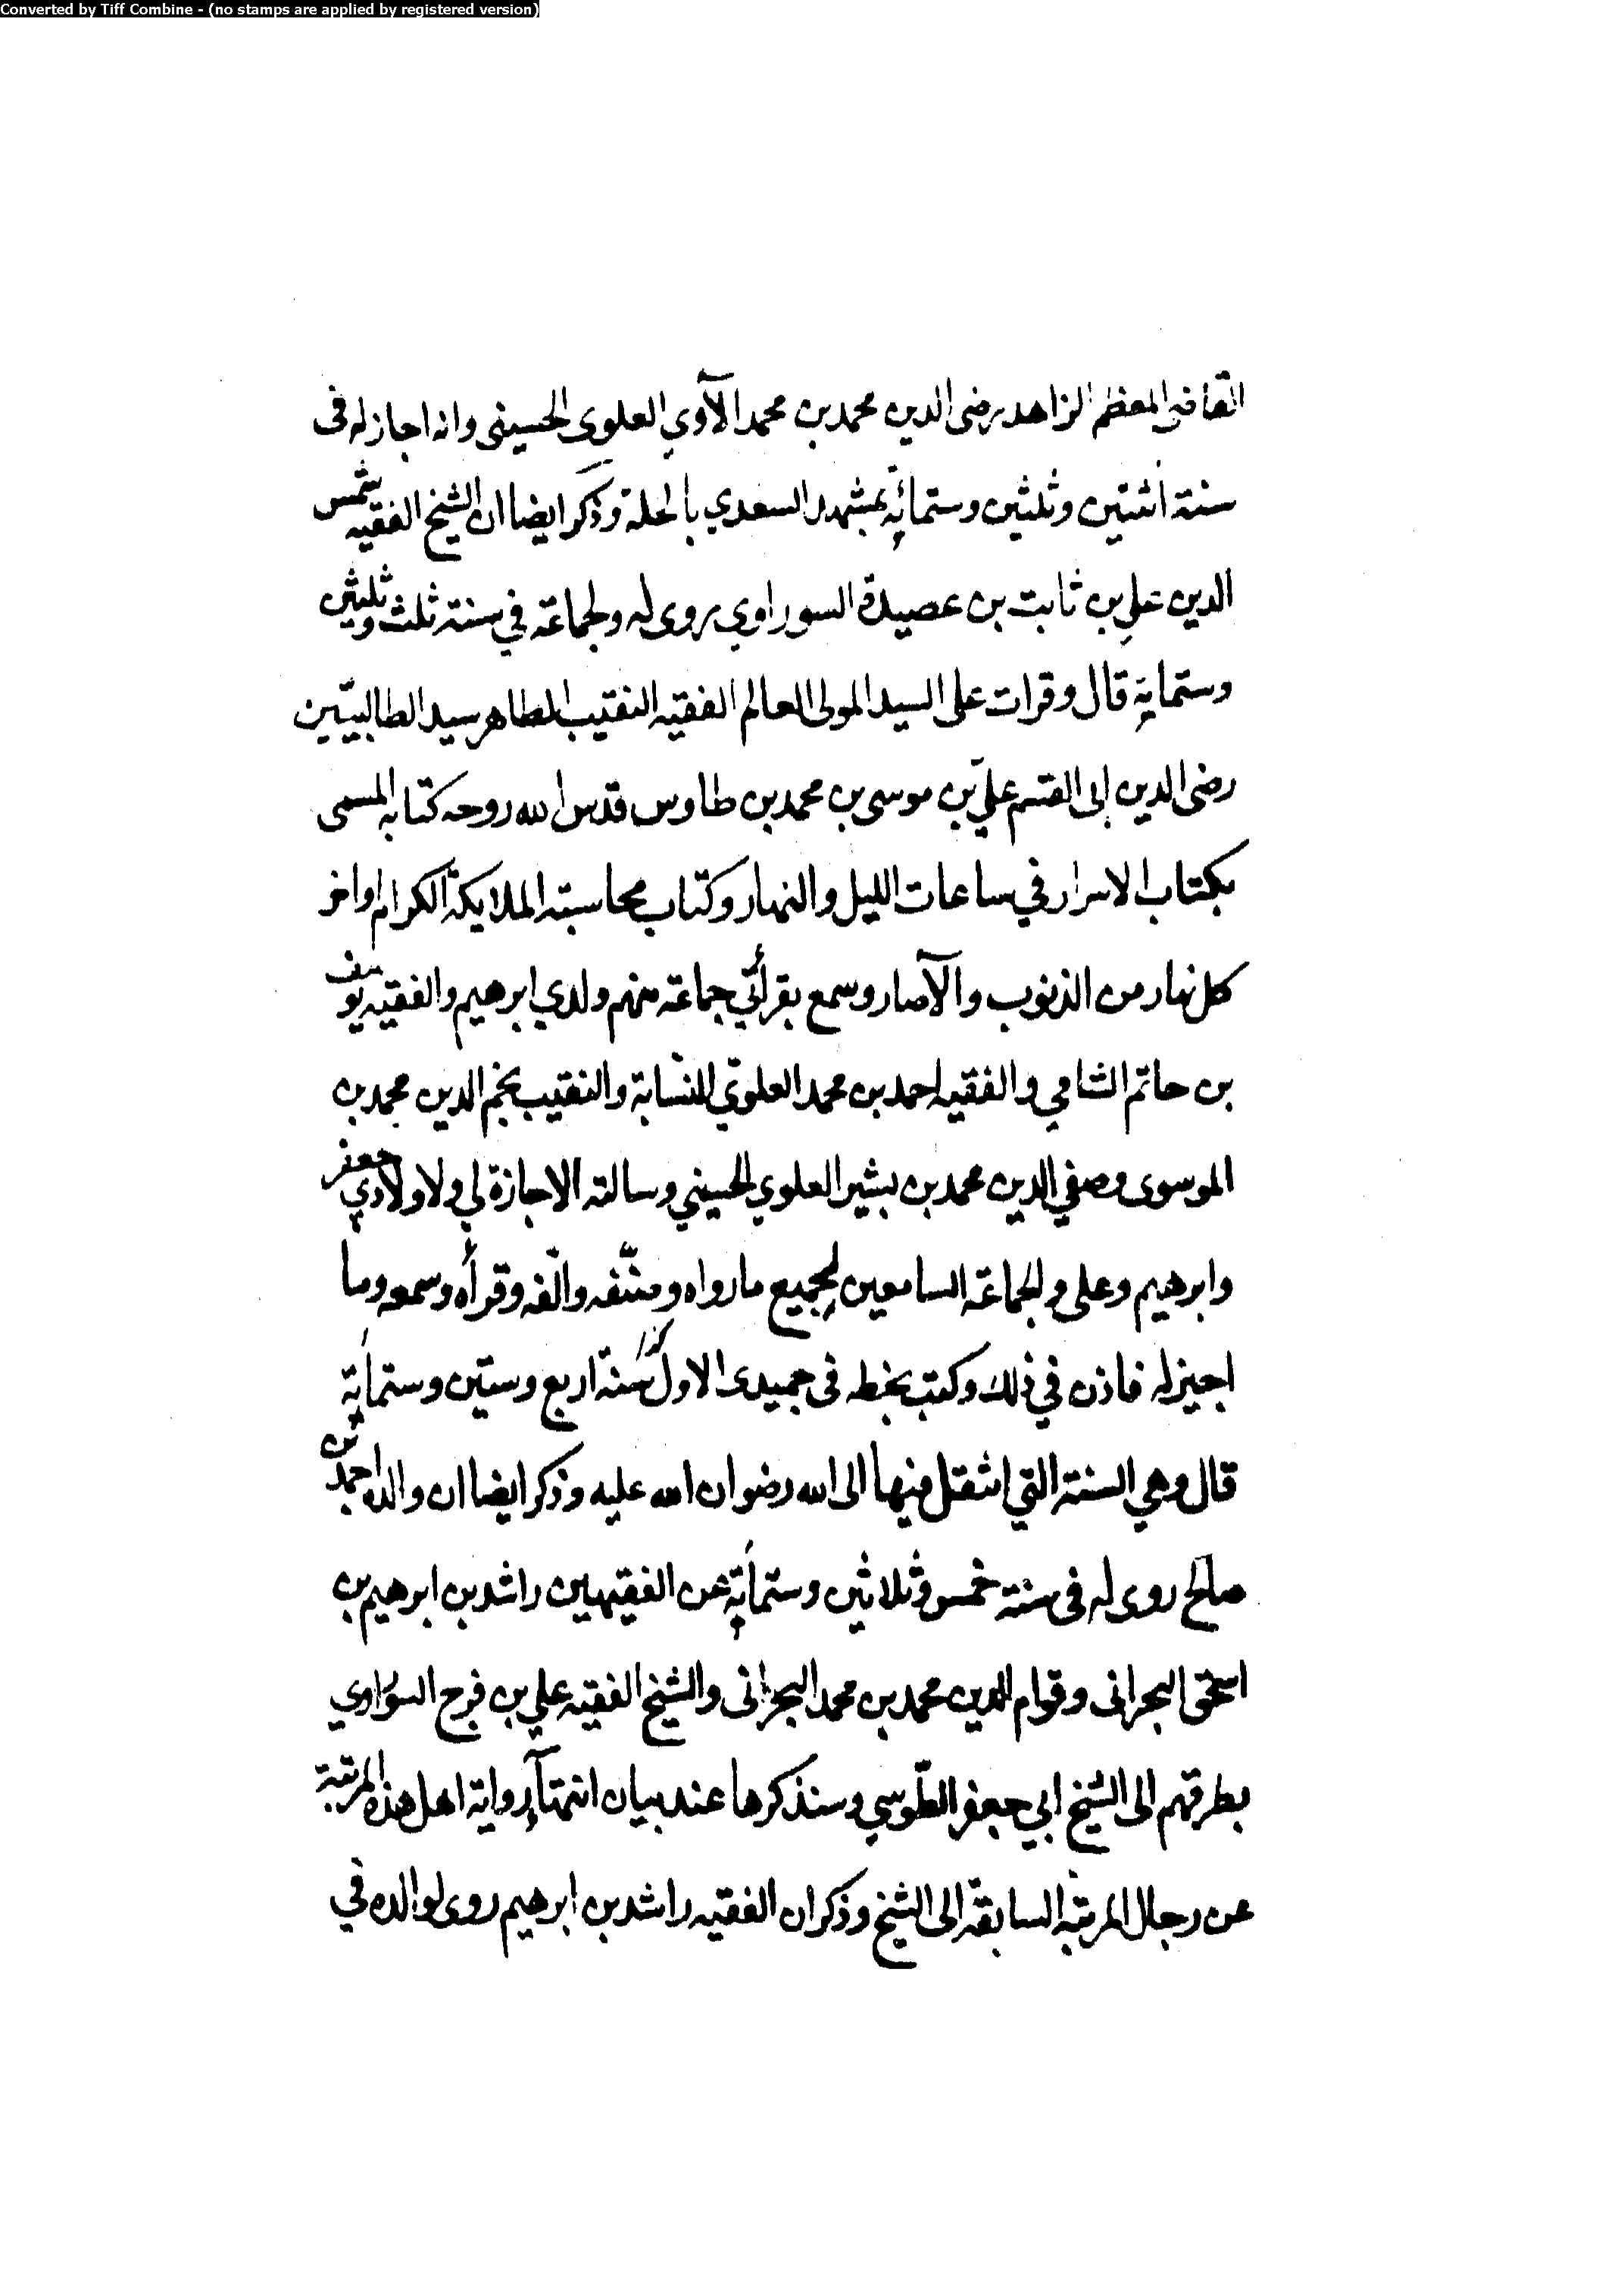 Converted by Tiff Combine - (no stamps are applied by registered version)
القاضى المعظم الزاهد رضى الدين محمد بن محمد الآوي العلوى الحسينى وانه اجاز له فى
سنة اثنتين وثلثين وستمائة بمشهد السعدي بالحلة وذكر ايضا ان الشيخ الفقيه شمس
الدين علي بن ثابت بن عصيدة السوراوي روى له ولجماعة في سنة ثلث وثلثين
وستماية قال وقرات على السيد المولى العالم الفقيه النقيب الطاهر سيد الطالبيّين
رضى الدين ابى القسم علي بن موسى بن محمد بن طاوس قدس الله روحه كتابه المسمى
بكتاب الاسرار في ساعات الليل والنهار وكتاب محاسبة الملايكة الكرام اواخر
كل نهار من الذنوب والآصار وسمع بقرائتي جماعة منهم ولدي ابرهيم والفقيه يوسف
بن حاتم الشامي والفقيه احمد بن محمد العلويّ النسّابة والنقيب نجم الدين محمد بن
الموسوى وصفي الدين محمد بن بشير العلوي الحسيني وسالته الاجازة لي ولاولادي جعفر
وابرهيم وعلى ولجماعة السامعين لجميع ما رواه وصنّفه والّفه وقرأه وسمعه وما
اجيز له فاذن في ذلك وكتب بخطه فى جميدى الاول كذا سنة اربع وستين وستمأية
قال وهي السنة التي انتقل فيها الى الله رضوان الله عليه وذكر ايضا ان والده احمد بن
صالح روى له فى سنة خمس وثلاثين وستمأية عن الفقيهين راشد بن ابرهيم بن
اسحق البحرانى وقوام الدين محمد بن محمد البحرانى والشيخ الفقيه علي بن فرج السوراوي
بطرقهم الى الشيخ ابي جعفر الطّوسي وسنذكرها عند بيان انتهاء رواية اهل هذه المرتبة
عن رجال المرتبة السابقة الى الشيخ وذكر ان الفقيه راشد بن ابرهيم روى لوالده في